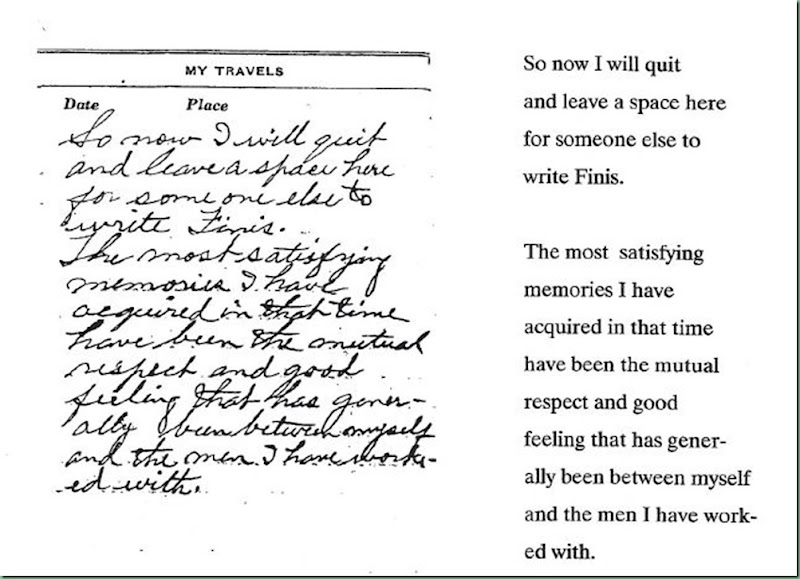 MY TRAVELS
Date Place
So now I will quit
and leave a space here
for some one else to
write Finis.
The most satisfying
memories I have
acquired in that time
have been the mutual
respect and good
feeling that has gener-
ally been between myself
and the men I have work-
ed with.
So now I will quit
and leave a space here
for someone else to
write Finis.
The most satisfying
memories I have
acquired in that time
have been the mutual
respect and good
feeling that has gener-
ally been between myself
and the men I have work-
ed with.